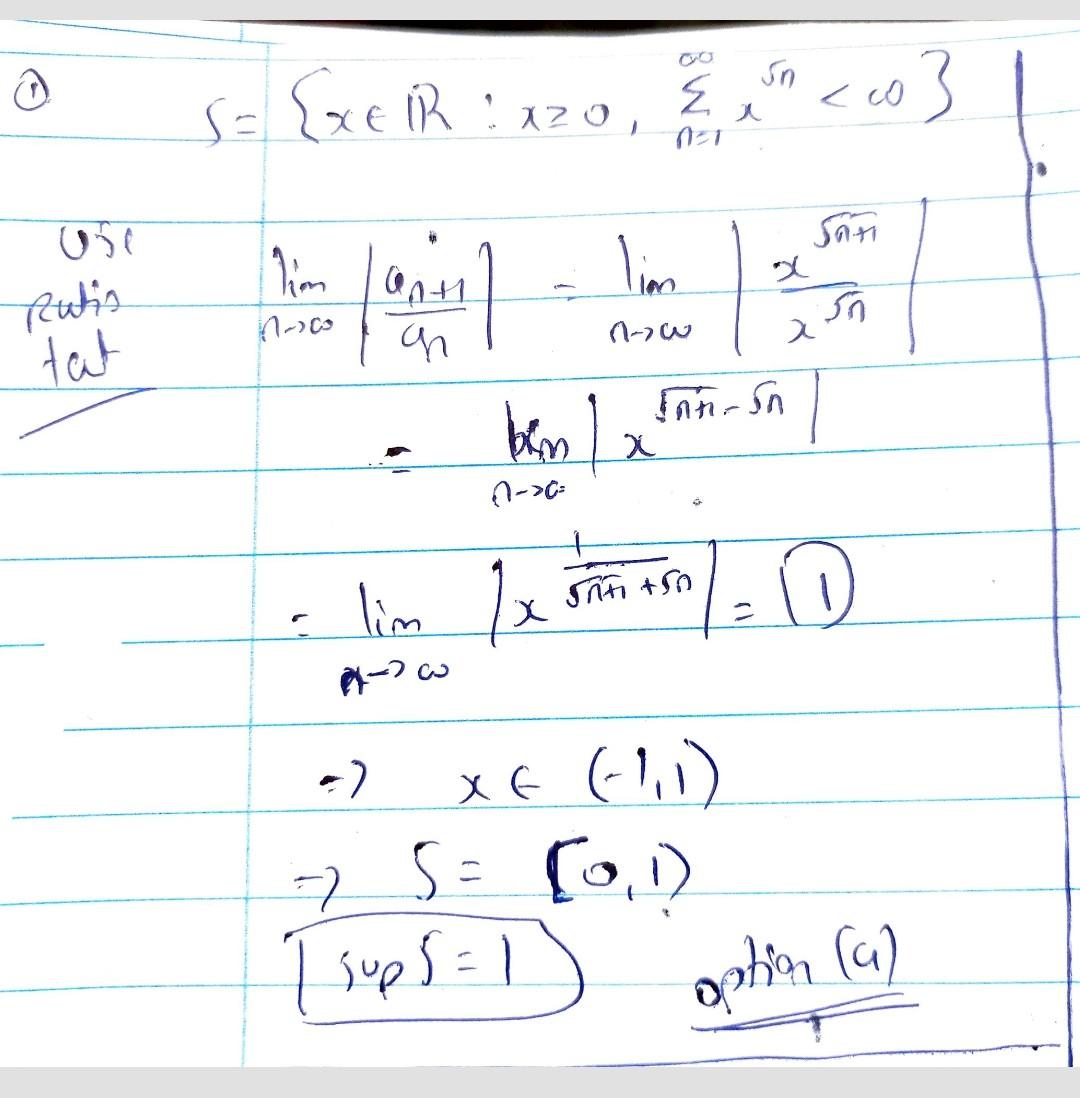 ① S = {x ∈ ℝ : x ≥ 0, ∑_{n=1}^{∞} x^{√n} < ∞}
Use Ratio test
lim_{n→∞} |a_{n+1}/a_n| = lim_{n→∞} |x^{√(n+1)}/x^{√n}|
= lim_{n→∞} |x^{√(n+1) - √n}|
= lim_{n→∞} |x^{1/(√(n+1) + √n)}| = 1
=> x ∈ (-1, 1)
=> S = [0, 1)
sup S = 1 option (a)